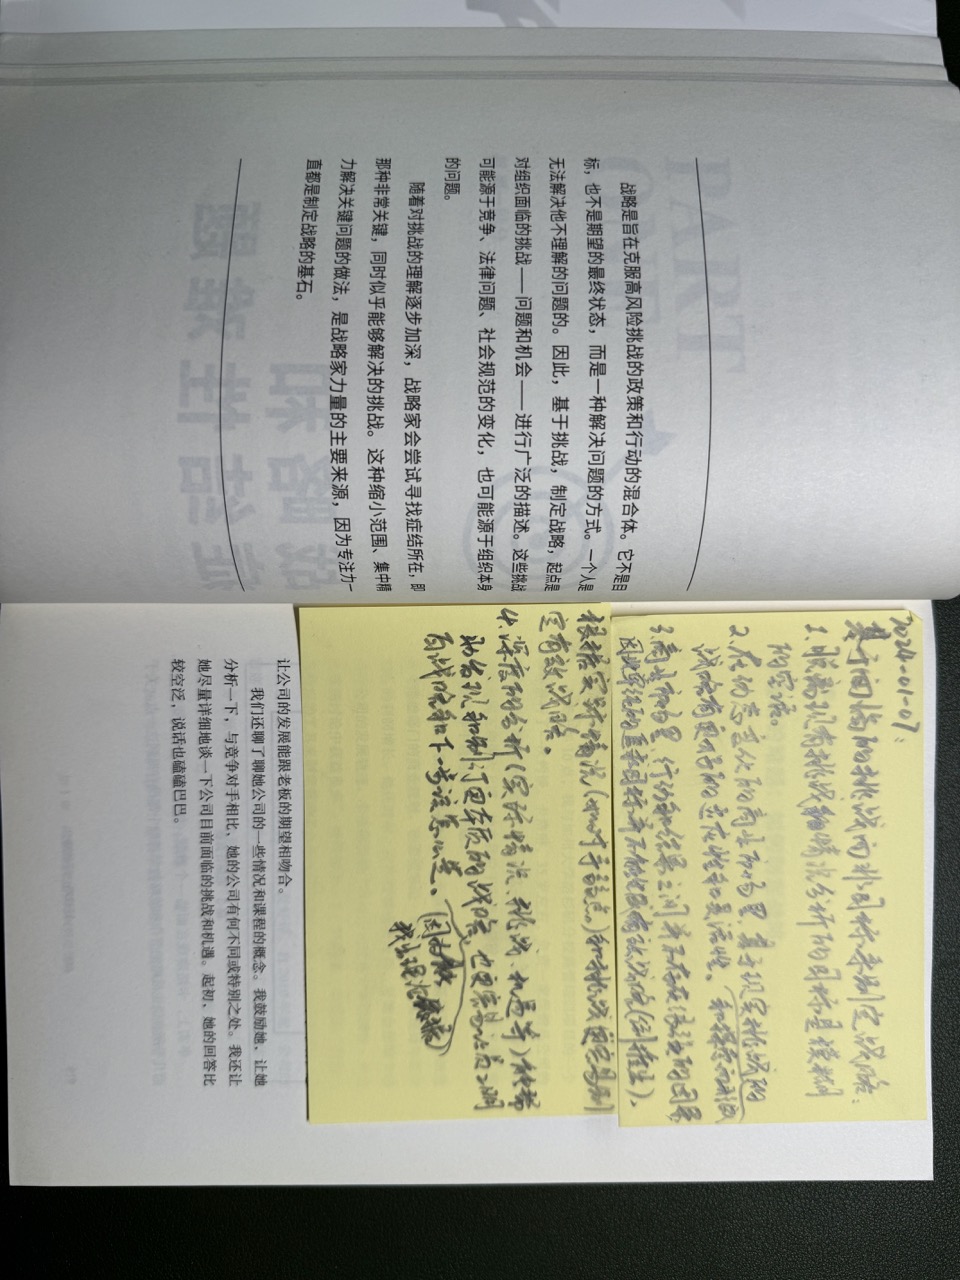 战略是旨在克服高风险挑战的政策和行动的混合体。它不是目
标，也不是期望的最终状态，而是一种解决问题的方式。一个人是
无法解决他不理解的问题的。因此，基于挑战，制定战略，起点是
对组织面临的挑战——问题和机会——进行广泛的描述。这些挑战
可能源于竞争、法律问题、社会规范的变化，也可能源于组织本身
的问题。
随着对挑战的理解逐步加深，战略家会尝试寻找症结所在，即
那种非常关键，同时似乎能够解决的挑战。这种缩小范围、集中精
力解决关键问题的做法，是战略家力量的主要来源，因为专注力一
直都是制定战略的基石。
PART
ONE
战略和
症结性难题
2024-01-07：
基于面临的挑战而非目标来制定战略：
1. 脱离现有挑战和情况分析的目标是模糊
的空话。
2. 在动态变化的商业市场里，基于现实挑战的
战略有更好的适应性和灵活性。
3. 商业市场里，行动和结果之间并不存在很强的因果
因此单纯的追求目标并不能生成有效战略（倒推出），
根据实际情况（如对手弱点）和挑战更容易制
定有效战略。
4. 深度的分析（实际情况、挑战、机遇等）能帮
助发现和制订更本质的战略，也更容易让员工明
白战略和下一步该怎么走。
（因为能
找出理论依据）
让公司的发展能跟老板的期望相吻合。
我们还聊了聊她公司的一些情况和课程的概念。我鼓励她，让她
分析一下，与竞争对手相比，她的公司有何不同或特别之处。我还让
她尽量详细地谈一下公司目前面临的挑战和机遇。起初，她的回答比
较空泛，说话也磕磕巴巴。